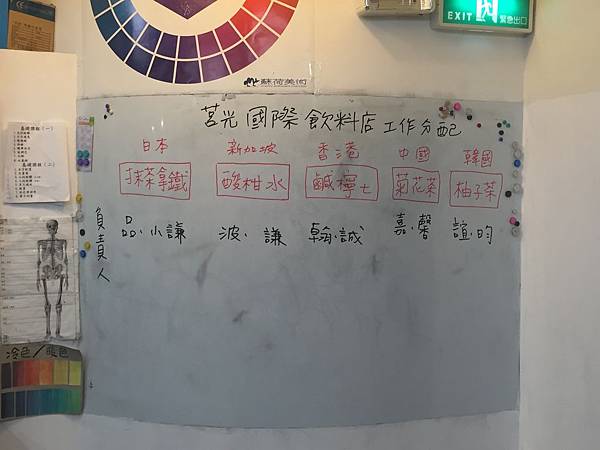 EXIT 緊急出口
蘇荷美術
莒光國際飲料店工作分配
日本 新加坡 香港 中國 韓國
抹茶拿鐵 酸柑水 鹹檸七 菊花茶 柚子茶
負責人 品、小謙 波、謙 翰、誠 嘉、馨 誼、昀
基礎課程(一)
基礎課程(二)
冷色/暖色